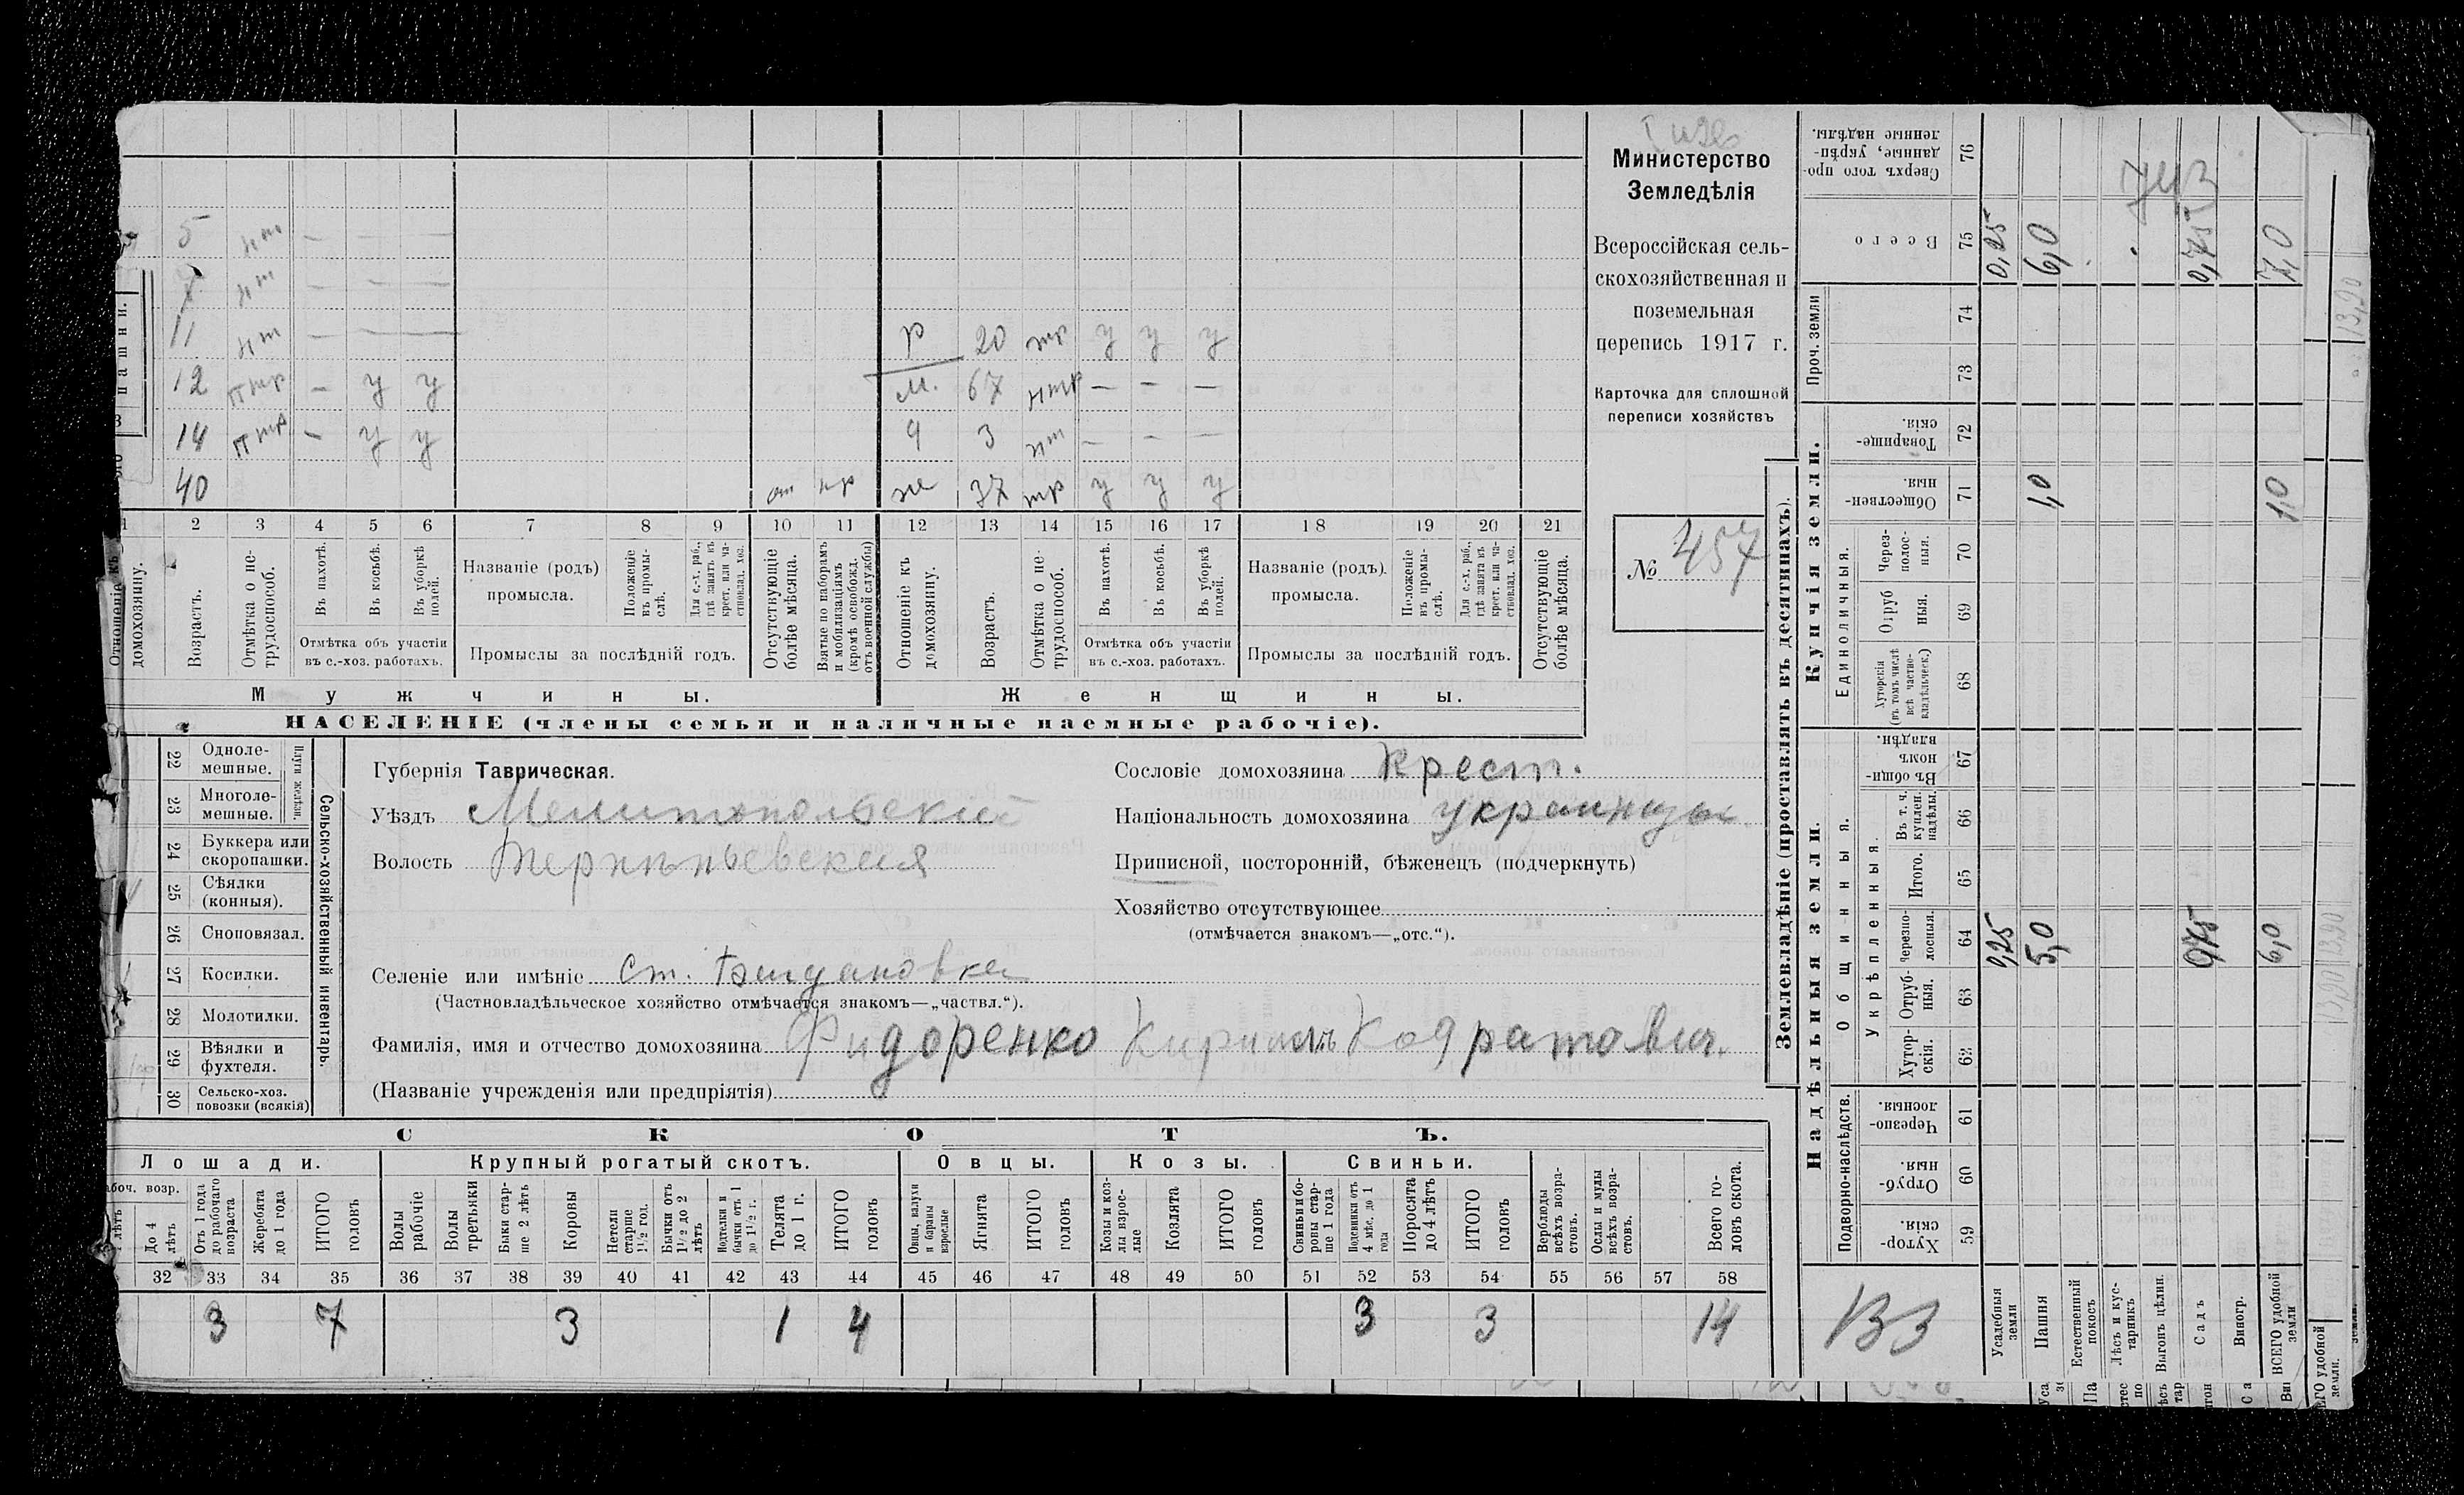 Министерство
Земледѣлія
Всероссійская сель-
скохозяйственная и
поземельная
перепись 1917 г.
Карточка для сплошной
переписи хозяйствъ
№ 457
5 нт — — —
нт — — —
11 нт — — —
12 птр — у у
14 птр — у у
40 от
р 20 тр у у у
м. 67 нтр — — —
9 3 нт — — —
ж 37 тр у у у
1 2 3 4 5 6 7 8 9 10 11 12 13 14 15 16 17 18 19 20 21
Отношеніе къ домохозяину.
Возрастъ.
Отмѣтка о не-
трудоспособ.
Въ пахотѣ.
Въ косьбѣ.
Въ уборкѣ
полей.
Отмѣтка объ участіи
въ с.-хоз. работахъ.
Названіе (родъ)
промысла.
Положеніе
въ промы-
слѣ.
Для с.-х. раб.,
гдѣ занятъ въ
крест. или ча-
стновлад. хоз.
Промыслы за послѣдній годъ.
Отсутствующіе
болѣе мѣсяца.
Взятые по наборамъ
и мобилизаціямъ
(кромѣ освобожд.
отъ военной службы)
Отношеніе къ
домохозяину.
Возрастъ.
Отмѣтка о не-
трудоспособ.
Въ пахотѣ.
Въ косьбѣ.
Въ уборкѣ
полей.
Отмѣтка объ участіи
въ с.-хоз. работахъ.
Названіе (родъ)
промысла.
Положеніе
въ промы-
слѣ.
Для с.-х. раб.,
гдѣ занята въ
крест. или ча-
стновлад. хоз.
Промыслы за послѣдній годъ.
Отсутствующіе
болѣе мѣсяца.
Мужчины.
Женщины.
НАСЕЛЕНІЕ (члены семьи и наличные наемные рабочіе).
22 Одноле-
мешные.
23 Многоле-
мешные.
Плуги желѣзн.
24 Буккера или
скоропашки.
25 Сѣялки
(конныя).
26 Сноповязал.
27 Косилки.
28 Молотилки.
29 Вѣялки и
фухтеля.
30 Сельско-хоз.
повозки (всякія)
Сельско-хозяйственный инвентарь.
Губернія Таврическая.
Уѣздъ Мелитопольскій
Волость Терпѣньевская
Селеніе или имѣніе ст. Богдановка
(Частновладѣльческое хозяйство отмѣчается знакомъ—„частвл.“).
Фамилія, имя и отчество домохозяина Фидоренко Кириллъ Кодратович.
(Названіе учрежденія или предпріятія)
Сословіе домохозяина Крест.
Національность домохозяина украинцы
Приписной, посторонній, бѣженецъ (подчеркнуть)
Хозяйство отсутствующее
(отмѣчается знакомъ—„отс.“).
СКОТЪ.
Лошади.
Крупный рогатый скотъ.
Овцы.
Козы.
Свиньи.
До 4
лѣтъ
Отъ 1 года
до рабочаго
возраста
Жеребята
до 1 года
ИТОГО
головъ
Волы
рабочіе
Волы
третьяки
Быки стар-
ше 2 лѣтъ
Коровы
Нетели
старше
1½ год.
Бычки отъ
1½ до 2
лѣтъ
Подтелки и
бычки отъ 1
до 1½ г.
Телята
до 1 г.
ИТОГО
головъ
Овцы, валухи
и бараны
взрослые
Ягнята
ИТОГО
головъ
Козы и коз-
лы взрос-
лые
Козлята
ИТОГО
головъ
Свиньи и бо-
ровы стар-
ше 1 года
Подсвинки отъ
4 мѣс. до 1
года
Поросята
до 4 лѣтъ
ИТОГО
головъ
Верблюды
всѣхъ возра-
стовъ.
Ослы и мулы
всѣхъ возра-
стовъ.
Всего го-
ловъ скота.
32 33 34 35 36 37 38 39 40 41 42 43 44 45 46 47 48 49 50 51 52 53 54 55 56 57 58
3 7 3 1 4 3 3 14
Землевладѣніе (проставлять въ десятинахъ).
Надѣльныя земли.
Купчія земли.
Проч. земли
Подворно-наслѣдств.
Общинныя.
Укрѣпленныя.
Единоличныя.
Хутор-
скія. 59
Отруб-
ныя. 60
Черезпо-
лосныя. 61
Хутор-
скія. 62
Отруб-
ныя. 63
Черезпо-
лосныя. 64
Итого. 65
Въ т. ч.
куплен.
надѣлы. 66
Въ общи-
номъ
владѣн. 67
Хуторскія
(въ томъ числѣ
всѣ частно-
владѣльческ.) 68
Отруб
ныя. 69
Через-
полос-
ныя. 70
Обществен-
ныя. 71
Товарище-
скія. 72
73
74
Всего 75
Сверхъ того про-
данные, укрѣп-
ленные надѣлы. 76
Усадебныя
земли 0,25 0,25
Пашня 5,0 1,0 6,0
Естественный
покосъ
Лѣсъ и кус-
тарникъ
Выгонъ цѣлин.
Садъ 0,75 0,75
Виногр.
ВСЕГО удобной
земли 6,0 1,0 7,0
13,20